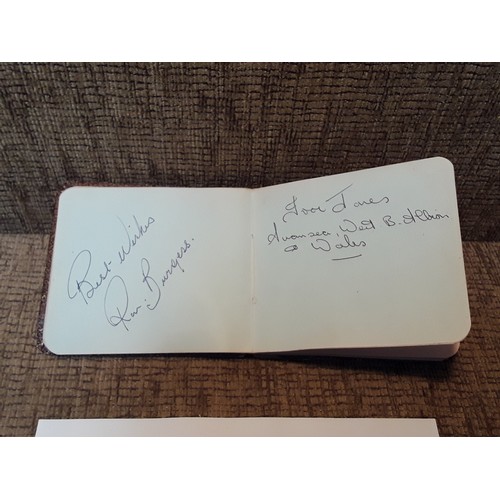 Best Wishes
Ron Burgess.
Ivor Jones
Swansea, West B. Albion
& Wales